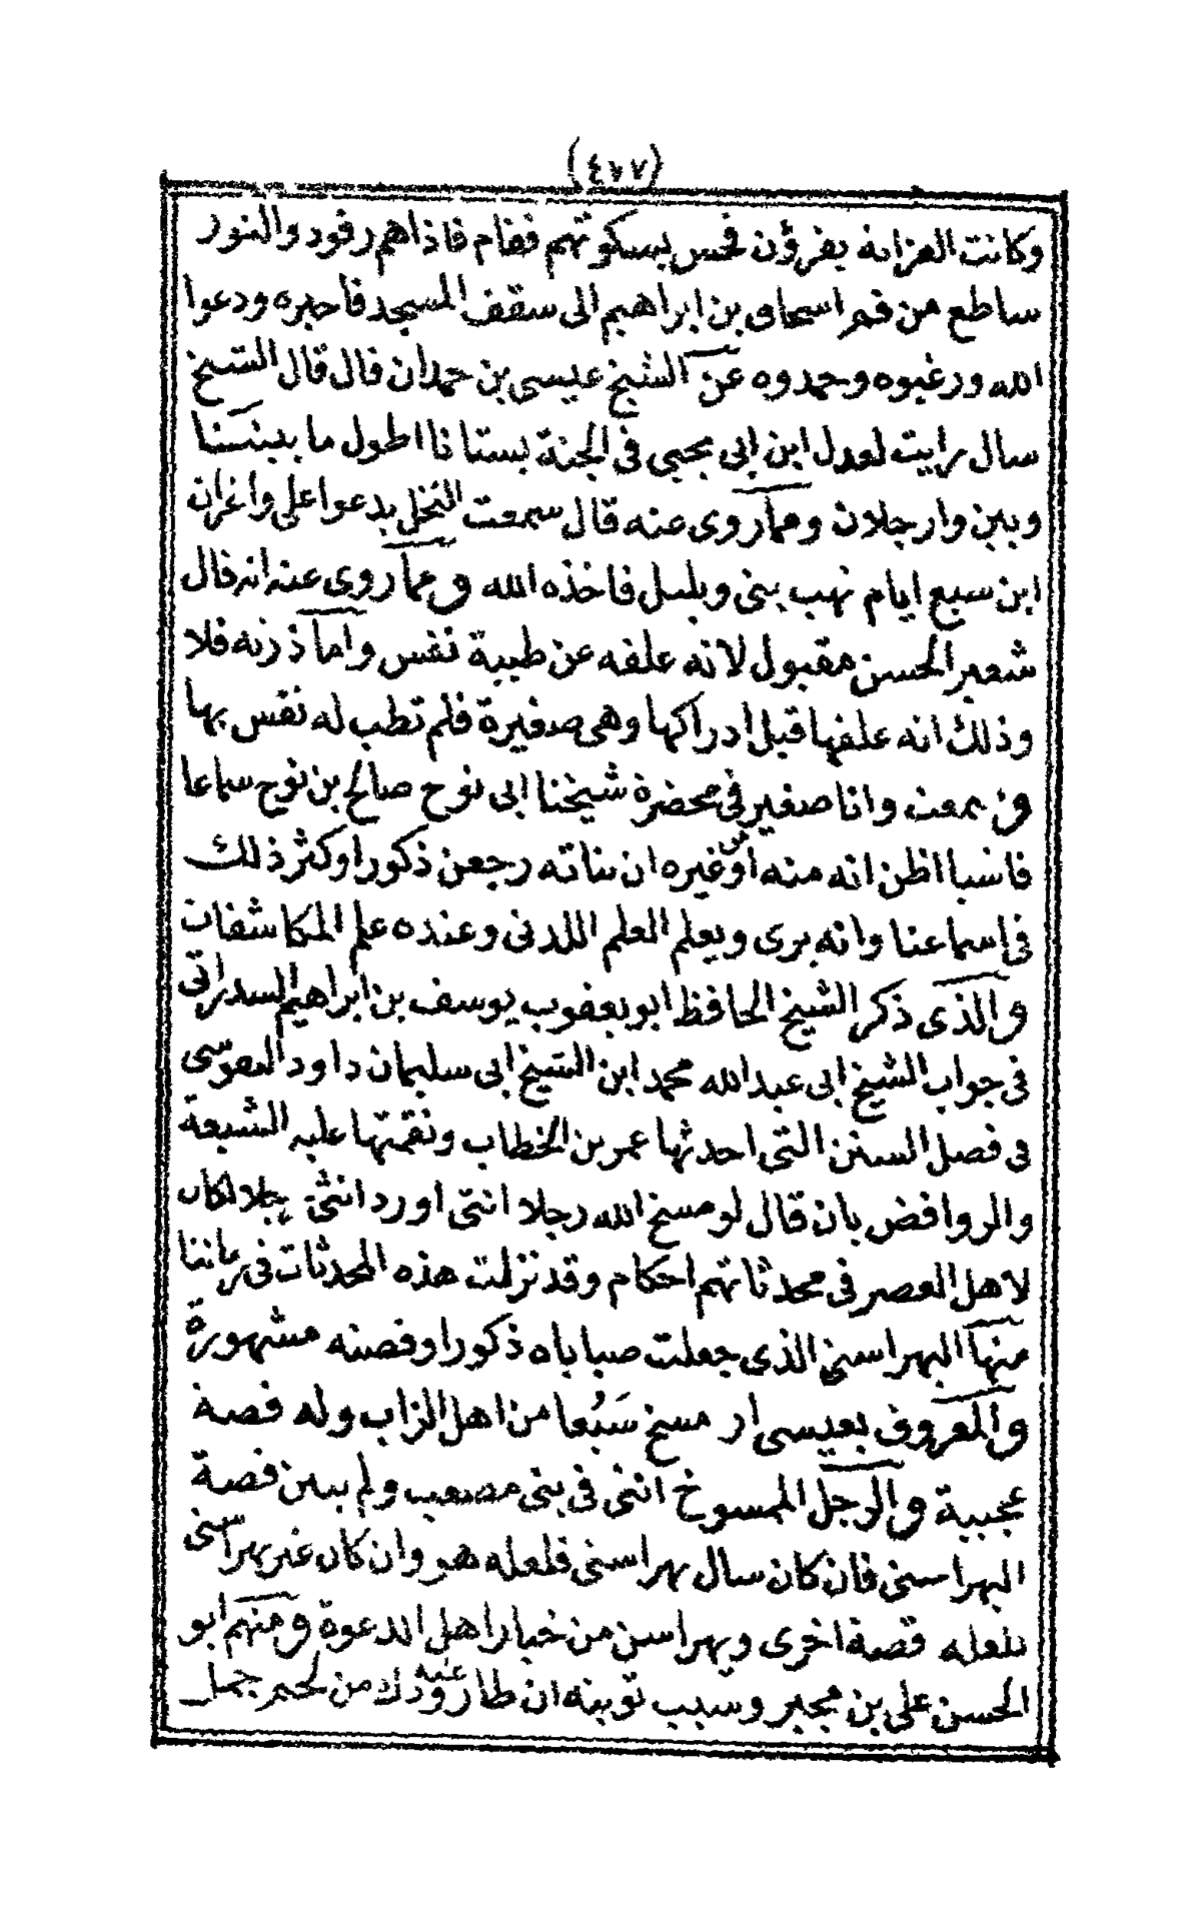 (٤٧٧)
وكانت العزابة يقرؤن فحس بسكوتهم فقام فاذاهم رقود والنور
ساطع من قبر اسحاق بن ابراهيم الى سقف المسجد فاخبره ودعوا
الله ورغبوه وحمدوه عن الشيخ عيسى بن حمدان قال قال الشيخ
سال رايت لعدل ابن ابى يحيى فى الجنة بستانا اطول ما بيننا
وبين وارجلان ومما روى عنه قال سمعت النخل يدعوا على وانغران
ابن سبع ايام نهب بنى ويليل فاخذه الله ومما روى عنه انه قال
شعير الحسن مقبول لانه علفه عن طيبة نفس واما ذرته فلا
وذلك انه علفها قبل ادراكها وهى صغيرة فلم تطب له نفس بها
وسمعت وانا صغير فى محضرة شيخنا ابى نوح صالح بن نوح سماعا
فاشيا اظن انه منه او من غيره ان بناته رجعن ذكورا وكثر ذلك
فى اسماعنا وانه يرى ويعلم العلم اللدنى وعنده علم المكاشفات
والذى ذكر الشيخ الحافظ ابو يعقوب يوسف بن ابراهيم السدراتى
فى جواب الشيخ ابى عبد الله محمد ابن الشيخ ابى سليمان داود
فى فصل السنن التى احدثها عمر بن الخطاب ونقمتها عليه الشيعة
والروافض بان قال لو مسخ الله رجلا انثى او رد انثى رجلا لكان
لاهل العصر فى محدثاتهم احكام وقد نزلت هذه المحدثات فى زماننا
منها البهراسنى الذى جعلت صباياه ذكورا وقصته مشهورة
والمعروف بعيسى ار مسخ سَبُعا من اهل الزاب وله قصة
عجيبة والرجل الممسوخ انثى فى بنى مصعب ولم يبين قصة
البهراسنى فان كان سال بهراسنى فلعله هو وان كان غير بهراسنى
فلعله قصة اخرى وبهراسن من خيار اهل الدعوة ومنهم ابو
الحسن على بن مجبر وسبب توبته ان طار عليه ودك من لحم جمل